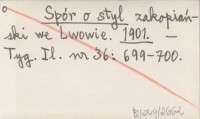 Spór o styl zakopiań-
ski we Lwowie. 1901. —
Tyg. Il. nr 36: 699-700.